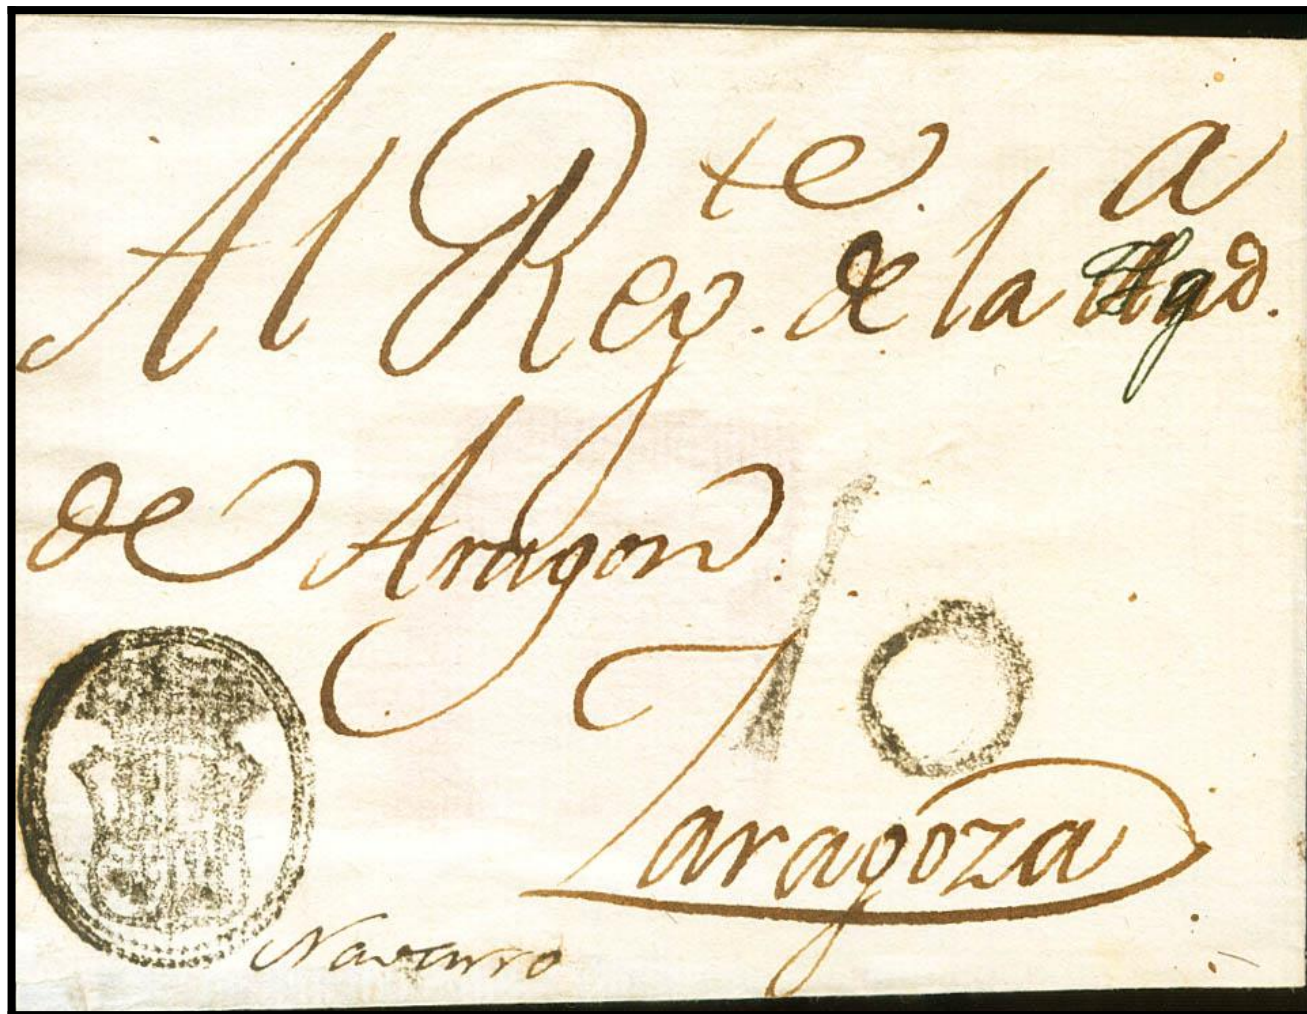 Al Reg.te de la
de Aragon.
10
Zaragoza
Navarro